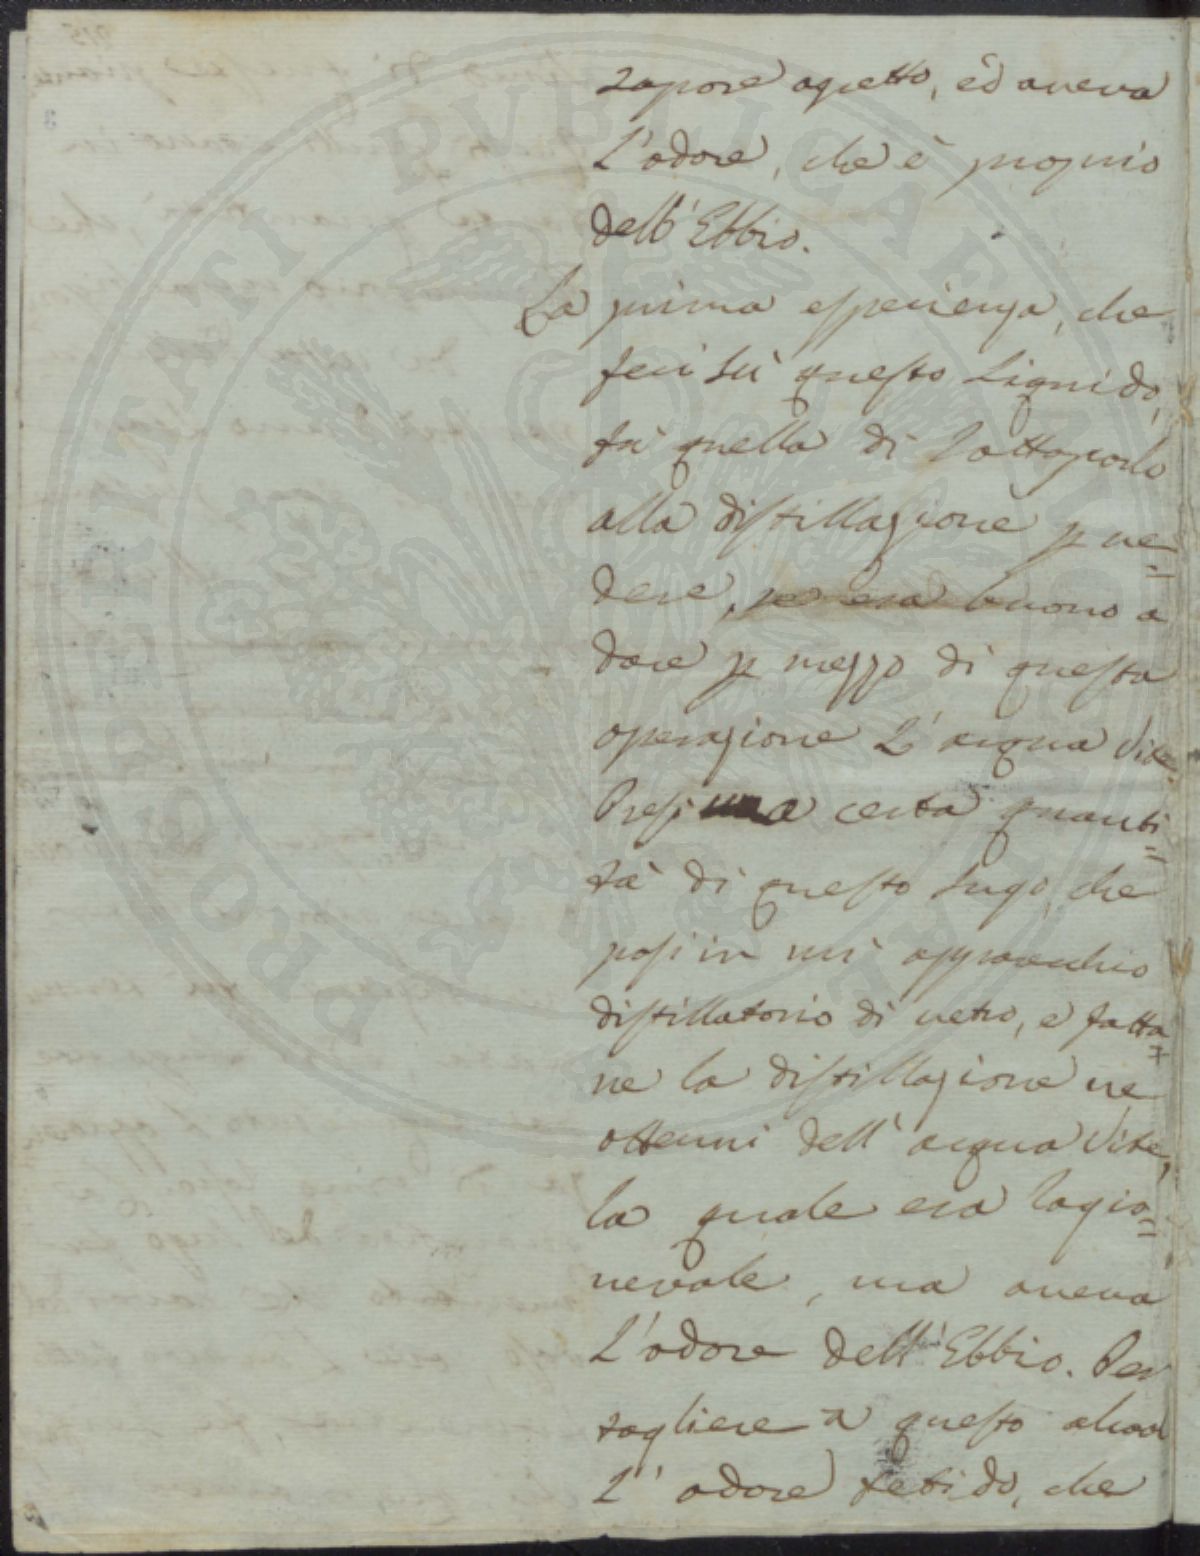 sapore agretto, ed aveva
l'odore, che è proprio
dell'Ebbio.
La prima esperienza, che
feci sù questo Liquido,
fù quella di sottoporlo
alla distillazione p ve=
dere, se era buono a
dare p mezzo di questa
operazione l'acqua vite.
Presi una certa quanti=
tà di questo sugo, che
posi in un' apparechio
distillatorio di vetro, e fatta=
ne la distillazione ne
ottenni dell'acqua vite,
la quale era ragio=
nevole, ma aveva
l'odore dell'Ebbio. Per
togliere a questo alcool
l'odore fetido, che
PROSPERITATI PUBLICAE AUGENDAE